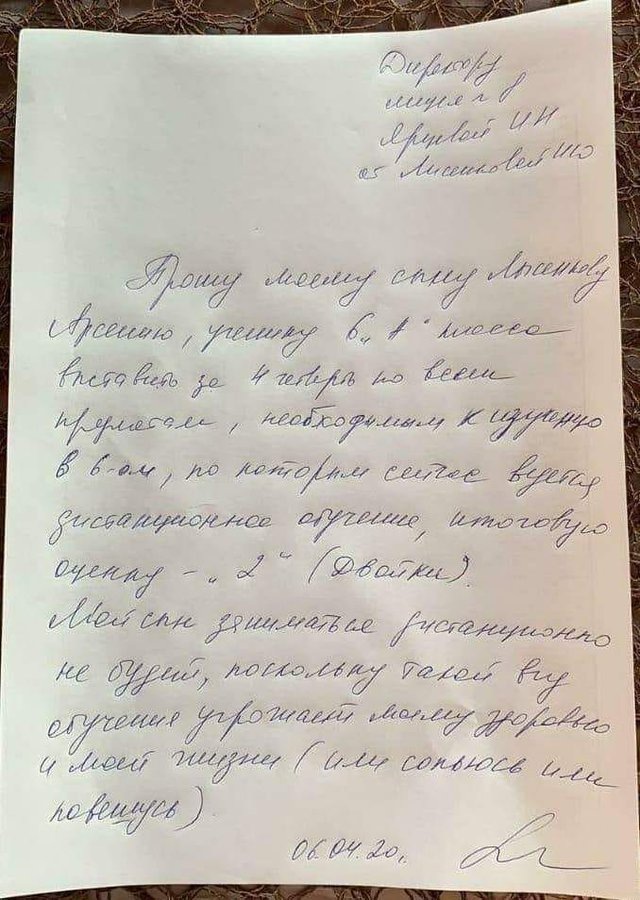 Директору
лицея № 8
Яруевой ИН
от Лысенковой ИЮ
Прошу моему сыну Лысенкову
Арсению, ученику 6 „А" класса
выставить за 4 четверть по всем
предметам, необходимым к изучению
в 6-ом, по которым сейчас ведется
дистанционное обучение, итоговую
оценку - „2" (Двойки).
Мой сын заниматься дистанционно
не будет, поскольку такой вид
обучения угрожает моему здоровью
и моей жизни (или сопьюсь или
повешусь).
06.04.20г.